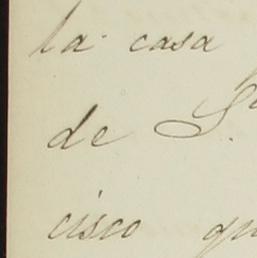 la casa
de S.
cisco qu